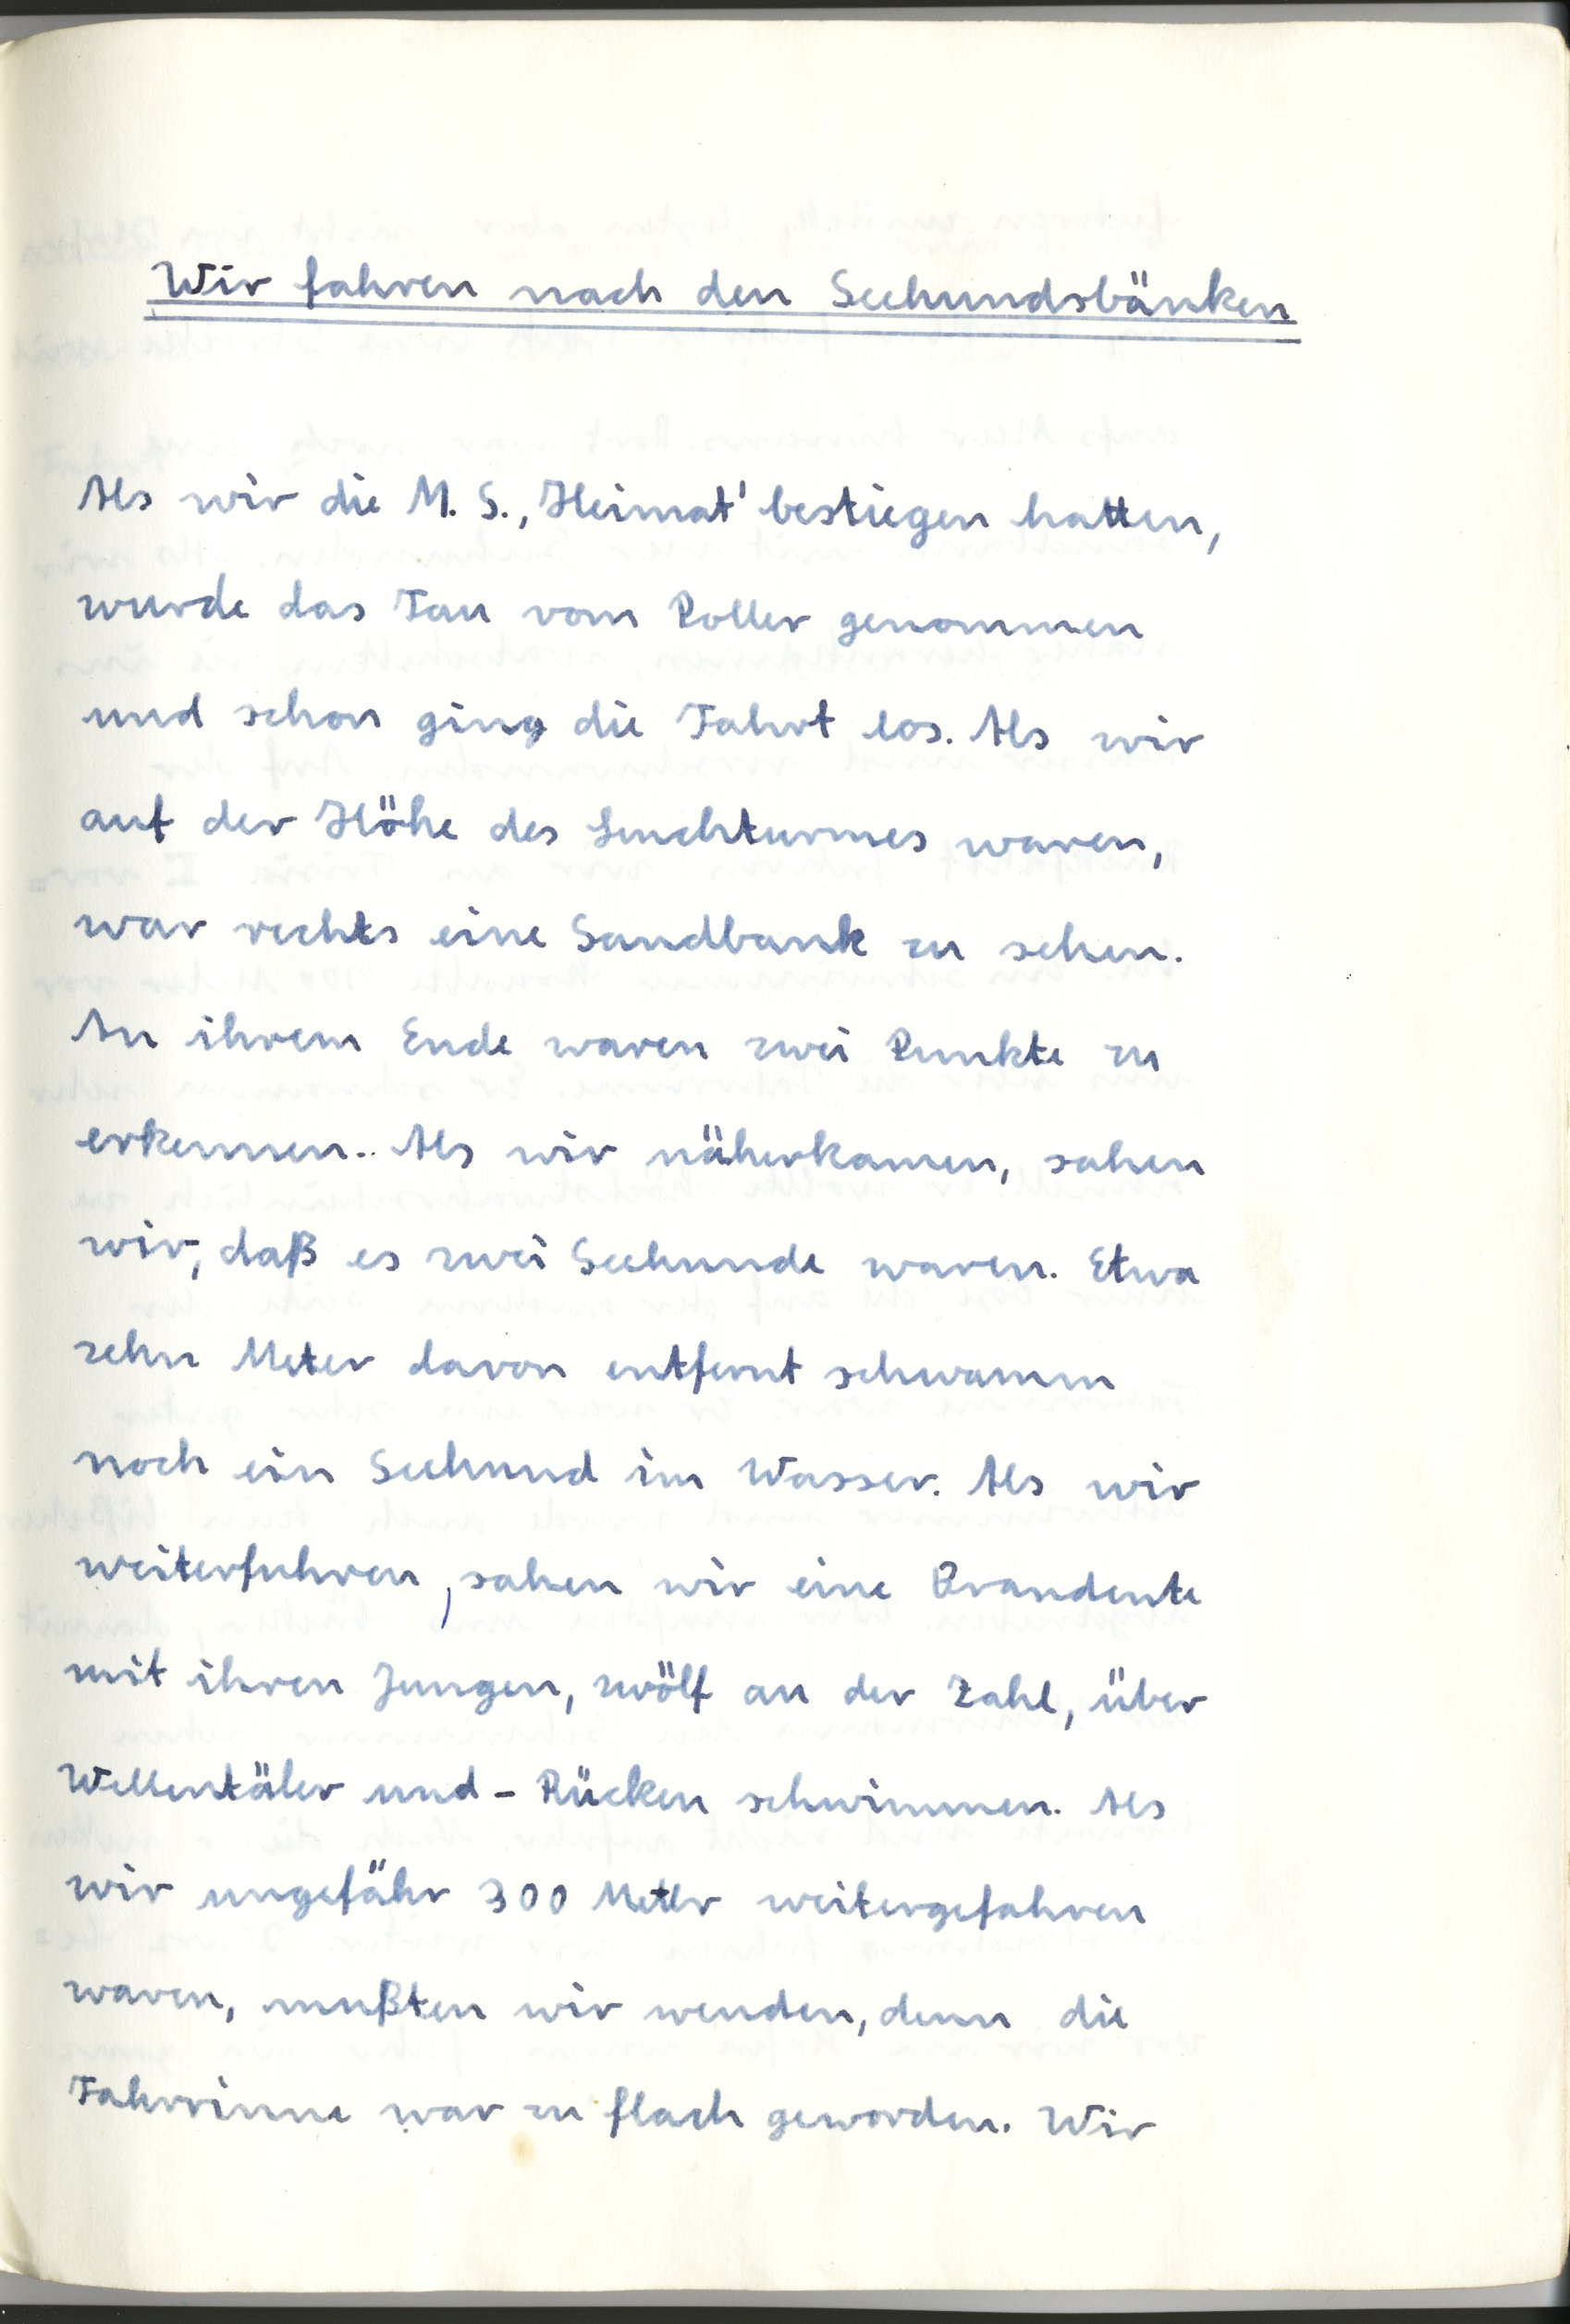 Wir fahren nach den Seehundsbänken
Als wir die M. S. ,Heimat' bestiegen hatten,
wurde das Tau vom Poller genommen
und schon ging die Fahrt los. Als wir
auf der Höhe des Leuchturmes waren,
war rechts eine Sandbank zu sehen.
An ihrem Ende waren zwei Punkte zu
erkennen. Als wir näherkamen, sahen
wir, daß es zwei Seehunde waren. Etwa
zehn Meter davon entfernt schwamm
noch ein Seehund im Wasser. Als wir
weiterfuhren, sahen wir eine Brandente
mit ihren Jungen, zwölf an der Zahl, über
Wellentäler und - Rücken schwimmen. Als
wir ungefähr 300 Meter weitergefahren
waren, mußten wir wenden, denn die
Fahrrinne war zu flach geworden. Wir